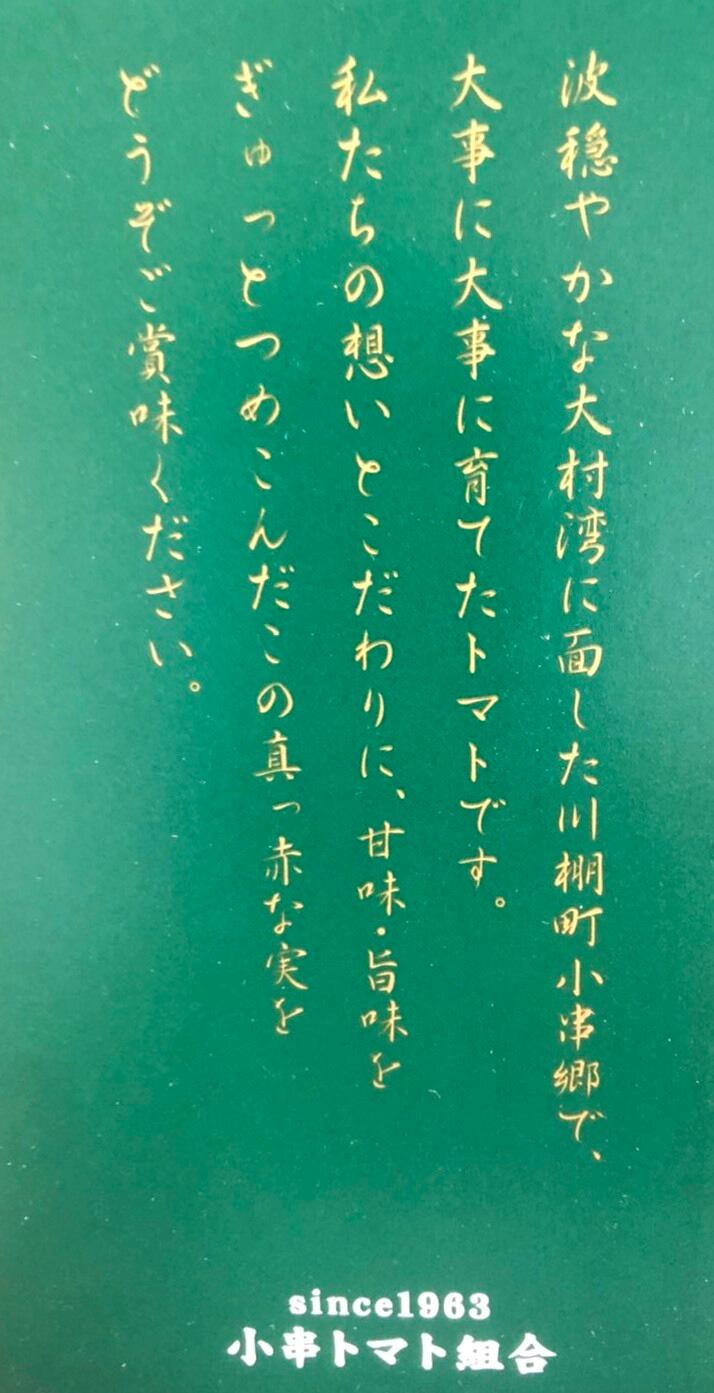 波穏やかな大村湾に面した川棚町小串郷で、
大事に大事に育てたトマトです。
私たちの想いとこだわりに、甘味・旨味を
ぎゅっとつめこんだこの真っ赤な実を
どうぞご賞味ください。
since1963
小串トマト組合